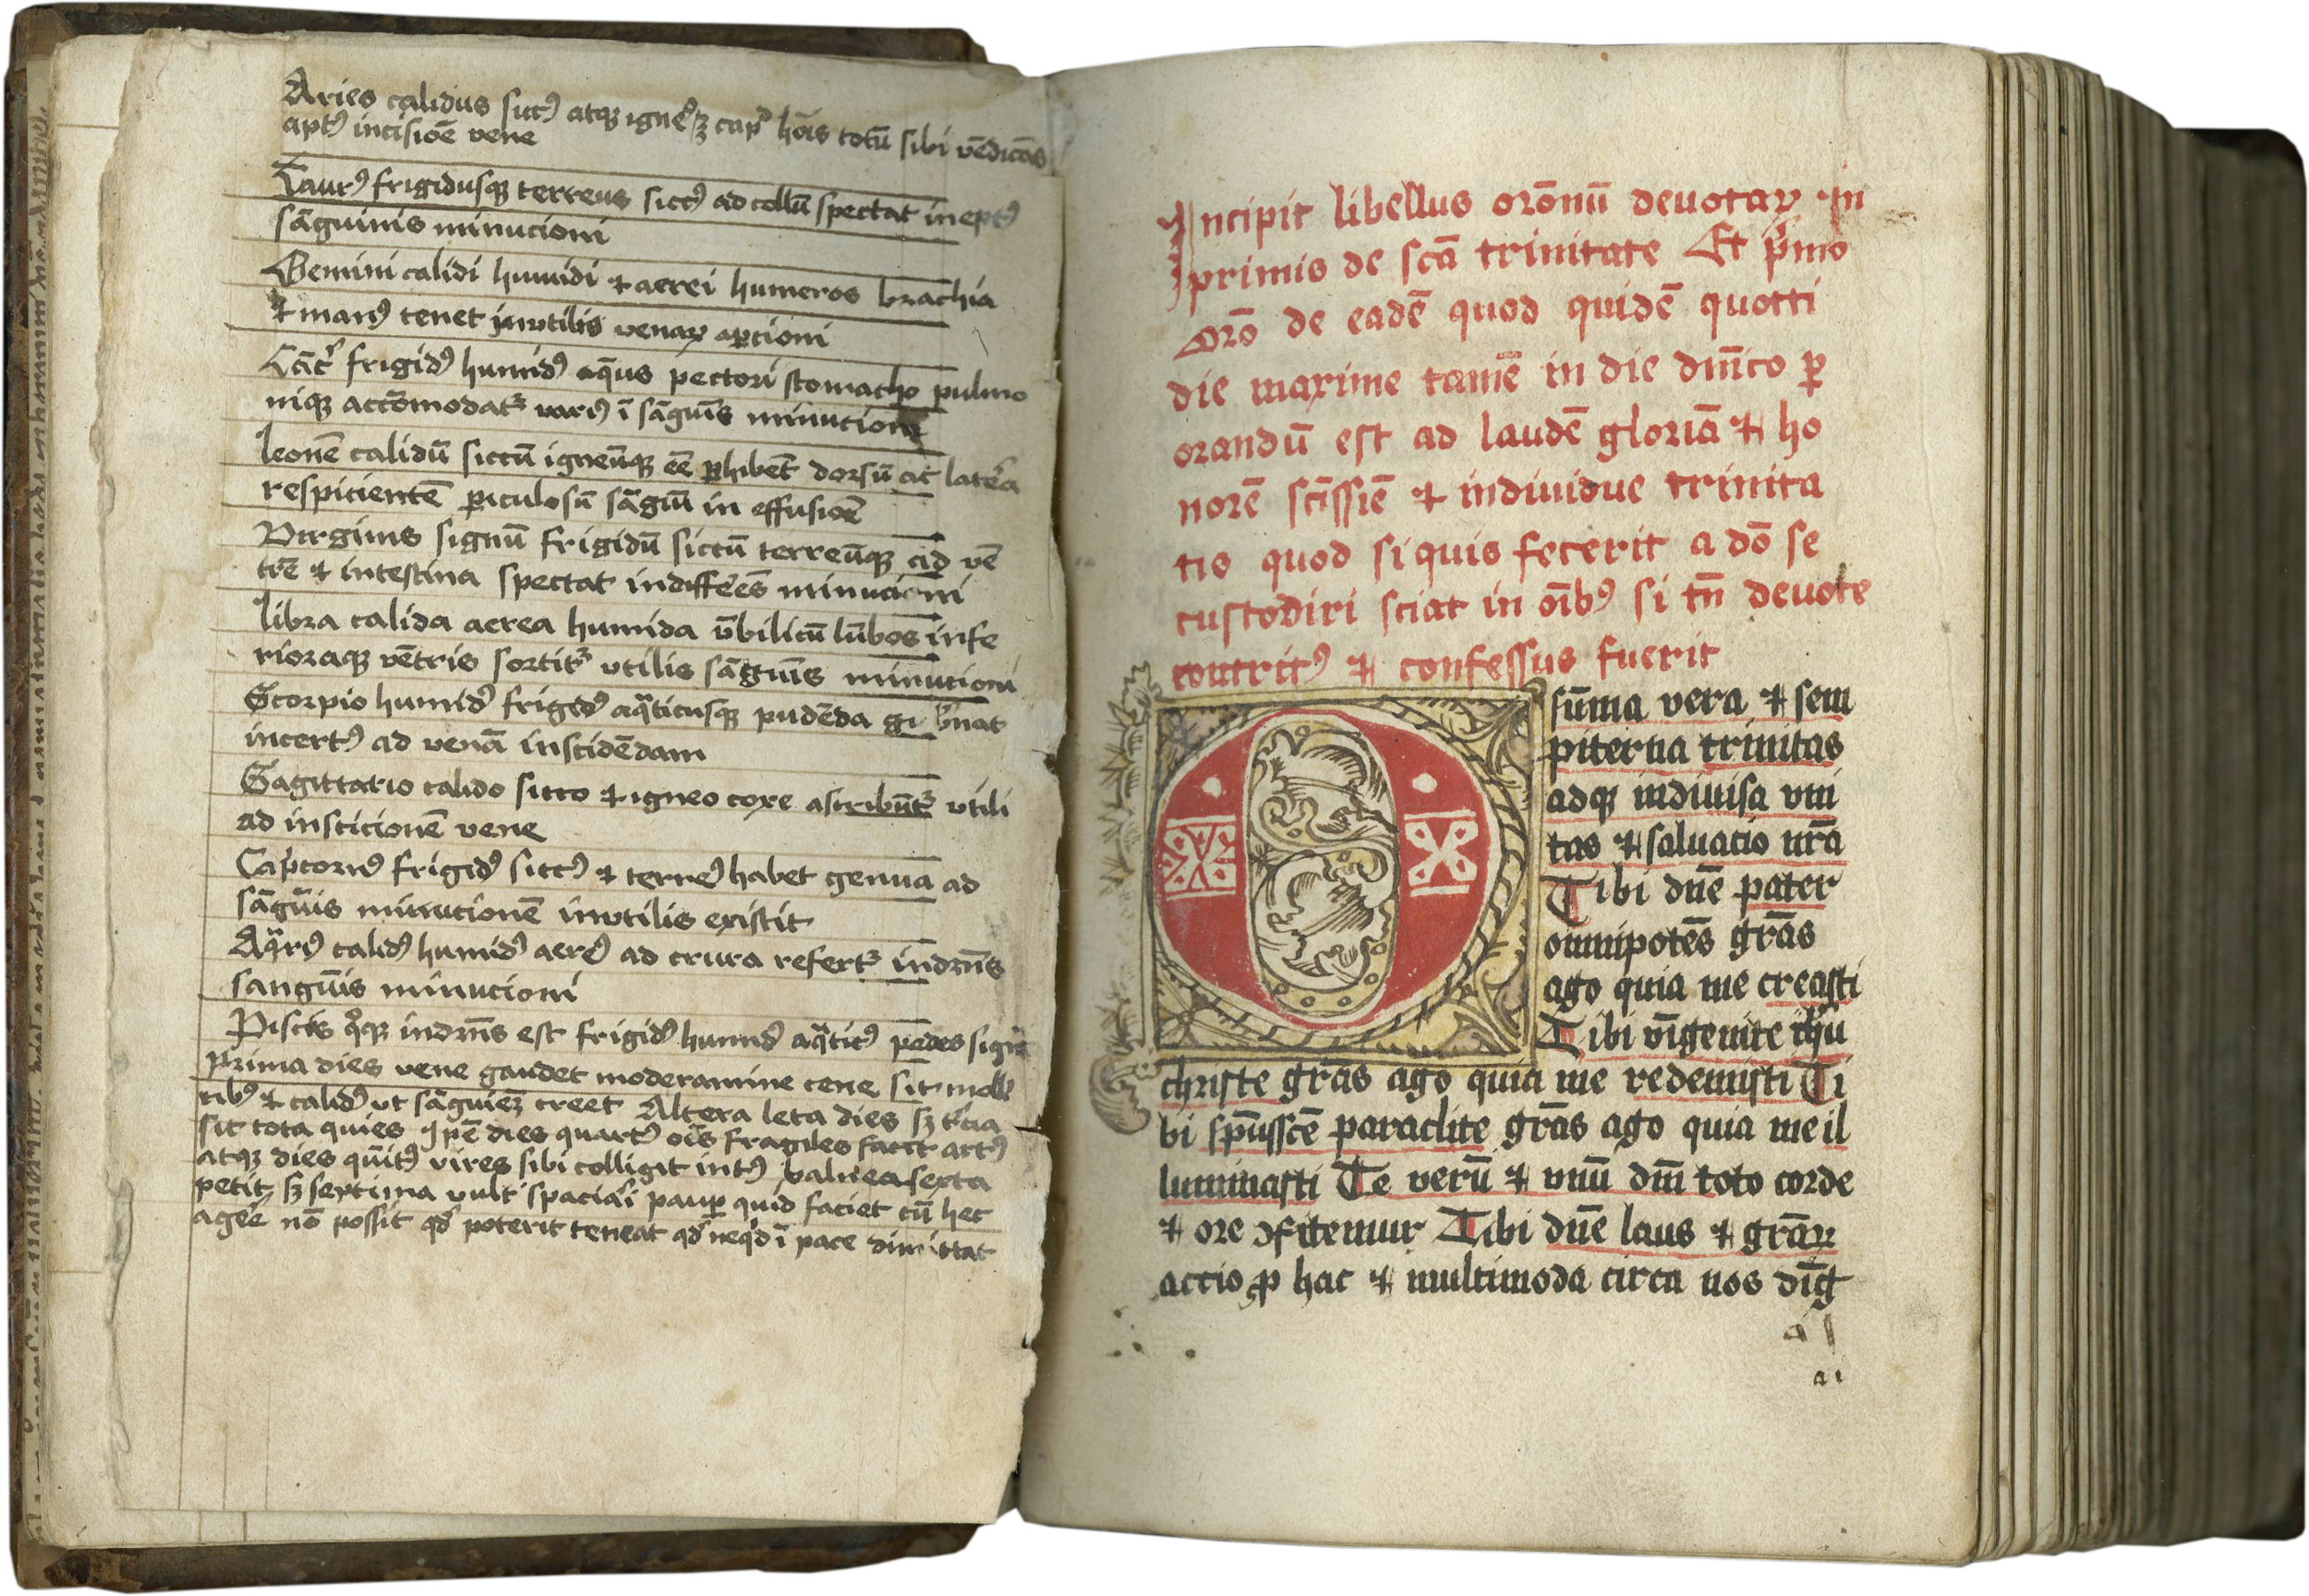 Aries calidus sicc9 atqz igne9 sz cap9 hōis totū sibi vēdicās
apt9 incisiōe vene
Taur9 frigidusqz terreus sicc9 ad collū spectat inept9
sāguinis minucioni
Gemini calidi humidi ⁊ aerei humeros brachia
⁊ man9 tenet inutilis venaꝝ aꝑcioni
Cāc̄ frigid9 humid9 aq̄us pectori stomacho pulmo
niqz accōmodat᷑ ī sāguīs minucione
Leonē calidū siccū igneūqz eē ꝑhibēt dorsū ac latera
respicientē ꝑiculosū sāguī in effusiōe
Virginis signū frigidū siccū terreūqz ad vē
trē ⁊ intestina spectat indifferēs minucioni
Libra calida aerea humida v̄bilicū lūbos infe
rioraqz vētris sortit᷑ vtilis sāguīs minucioni
Scorpio humid9 frigid9 aqͣticusqz pudēda gubnat
incert9 ad venā inscidēdam
Sagittario calido sicco ⁊ igneo coxe ascribūt᷑ vtili
ad inscicionē vene
Capͥcorn9 frigid9 sicc9 ⁊ terre9 habet genua ad
sāguīs minucionē inutilis existit
Aqͣri9 calid9 humid9 aere9 ad crura refert᷑ indr̄ns
sanguīs minucioni
Piscis qͦqz indr̄ns est frigid9 humid9 aqͣtic9 pedes
Prima dies vene gaudet moderamine cene Sit
rib9 ⁊ calid9 ut creet Altera leta dies sz t͛cia
sit tota quies dies quart9 oēs fragiles facit art9
atqz dies quīt9 vires sibi colligit int9 balnea sexta
petit sz septima vult spaciari pauꝑ quid faciet cū hec
agere nō possit qd̄ poterit teneat qd̄ ī pace dimittat
Incipit libellus orōnū deuotaꝝ In
primis de scā trinitate Et pͥmo
Orō de eadē quod quidē quotti
die maxime tamē in die dnīco ꝑ
orandū est ad laudē gloriā ⁊ ho
norē sc̄issiē ⁊ indiuidue trinita
tis quod si quis fecerit a dō se
custodiri sciat in oīb9 si tn̄ deuote
contrit9 ⁊ confessus fuerit
O sūma vera ⁊ sem
piterna trinitas
adqz indiuisa vni
tas ⁊ saluacio nrā
Tibi dn̄e pater
omnipotēs grās
ago quia me creasti
Tibi vnigenite ihū
christe grās ago quia me redemisti Ti
bi sp̄ussc̄e paraclite grās ago quia me il
luminasti Te verū ⁊ vnū dm̄ toto corde
⁊ ore ↄfitemur Tibi dn̄e laus ⁊ grāꝝ
accio ꝓ hac ⁊ multimoda circa nos dīg